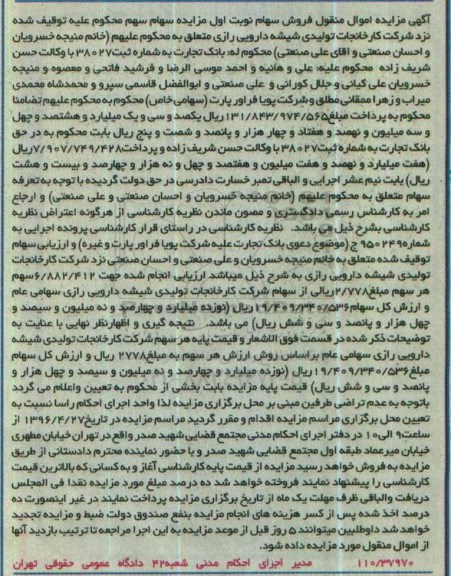 آگهی مزایده اموال منقول فروش سهام نوبت اول مزایده سهام سهم محکوم علیه توقیف شده
نزد شرکت کارخانجات تولیدی شیشه دارویی رازی متعلق به محکوم علیهم (خانم منیجه خسرویان
و احسان صنعتی و اقای علی صنعتی) محکوم له: بانک تجارت به شماره ثبت۳۸۰۲۷ با وکالت حسن
شریف زاده محکوم علیه: علی و هانیه و احمد موسی الرضا و فرشید فاتحی و معصوه و منیجه
خسرویان علی کیانی و جلال کورانی و علی صنعتی و ابوالفضل قاسمی سپرو و محمدشاه محمدی
میراب و زهرا ممقانی مطلق و شرکت پویا فراور پارت (سهامی خاص) محکوم به محکوم علیهم تضامنا
محکوم به پرداخت مبلغ۱۳۱/۸۴۳/۹۷۴/۵۶۵ ریال یکصد و سی و یک میلیارد و هشتصد و چهل
و سه میلیون و نهصد و هفتاد و چهار هزار و پانصد و شصت و پنج ریال بابت محکوم به در حق
بانک تجارت به شماره ثبت۳۸۰۲۷ با وکالت حسن شریف زاده و پرداخت۷/۹۰۷/۷۴۹/۴۲۸ریال
(هفت میلیارد و نهصد و هفت میلیون و هفتصد و چهل و نه هزار و چهارصد و بیست و هشت
ریال) بابت نیم عشر اجرایی و الباقی تمبر خسارت دادرسی در حق دولت گردیده با توجه به تعرفه
سهام متعلق به محکوم علیهم (خانم منیجه خسرویان و احسان صنعتی و علی صنعتی) و ارجاع
امر به کارشناس رسمی دادگستری و مصون ماندن نظریه کارشناسی از هرگونه اعتراض نظریه
کارشناسی بشرح ذیل می باشد. نظریه کارشناسی در راستای قرار کارشناسی پرونده اجرایی به
شماره۹۵۰۲۴۹ ج (موضوع دعوی بانک تجارت علیه شرکت پویا فراور پارت و غیره) و ارزیابی سهام
توقیف شده متعلق به خانم منیجه خسرویان و علی صنعتی و احسان صنعتی نزد شرکت کارخانجات
تولیدی شیشه دارویی رازی به شرح ذیل میباشد ارزیابی انجام شده جهت ۶/۸۸۲/۴۱۲سهم
هر سهم مبلغ۲/۷۷۸ریالی از سهام شرکت کارخانجات تولیدی شیشه دارویی رازی سهامی عام
و ارزش کل سهام۱۹/۴۰۹/۳۴۰/۵۳۶ریال (نوزده میلیارد و چهارصد و نه میلیون و سیصد و
چهل هزار و پانصد و سی و شش ریال) می باشد. نتیجه گیری و اظهارنظر نهایی با عنایت به
توضیحات ذکر شده در قسمت فوق الاشعار و قیمت پایه هر سهم شرکت کارخانجات تولیدی شیشه
دارویی رازی سهامی عام براساس روش ارزش هر سهم به مبلغ۲۷۷۸ ریال و ارزش کل سهام
مبلغ۱۹/۴۰۹/۳۴۰/۵۳۶ریال (نوزده میلیارد و چهارصد و نه میلیون و سیصد و چهل هزار و
پانصد و سی و شش ریال) قیمت پایه مزایده بابت بخشی از محکوم به تعیین واعلام می گردد
باتوجه به عدم تراضی طرفین مبنی بر محل برگزاری مزایده لذا واحد اجرای احکام راسا نسبت به
تعیین محل برگزاری مراسم مزایده اقدام و مقرر گردید مراسم مزایده در تاریخ۱۳۹۶/۴/۲۷ از
ساعت۹ الی۱۰ در دفتر اجرای احکام مدنی مجتمع قضایی شهید صدر واقع در تهران خیابان مطهری
خیابان میرعماد طبقه اول مجتمع قضایی شهید صدر و با حضور نماینده محترم دادستانی از طریق
مزایده به فروش خواهد رسید مزایده از قیمت پایه کارشناسی آغاز و به کسانی که بالاترین قیمت
کارشناسی را پیشنهاد نمایند فروخته خواهد شد ده درصد مبلغ مورد مزایده نقدا فی المجلس
دریافت والباقی ظرف مهلت یک ماه از تاریخ برگزاری مزایده پرداخت نمایند در غیر اینصورت ده
درصد اخذ شده پس از کسر هزینه های انجام مزایده بنفع صندوق دولت ضبط و مزایده تجدید
خواهد شد داوطلبین میتوانند ۵ روز قبل از موعد مزایده به این اجرا مراجعه تا ترتیب بازدید آنها
از اموال منقول مورد مزایده داده شود.
۱۱۰/۳۷۹۷۰ مدیر اجرای احکام مدنی شعبه۴۲ دادگاه عمومی حقوقی تهران